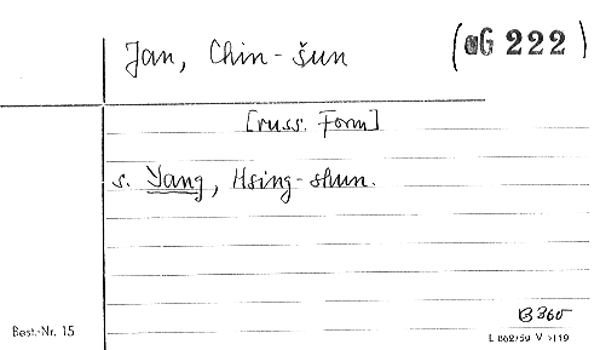 Jan, Chin-šun
(aG 222)
[russ. Form]
s. Yang, Hsing-shun.
B 360
Best.-Nr. 15